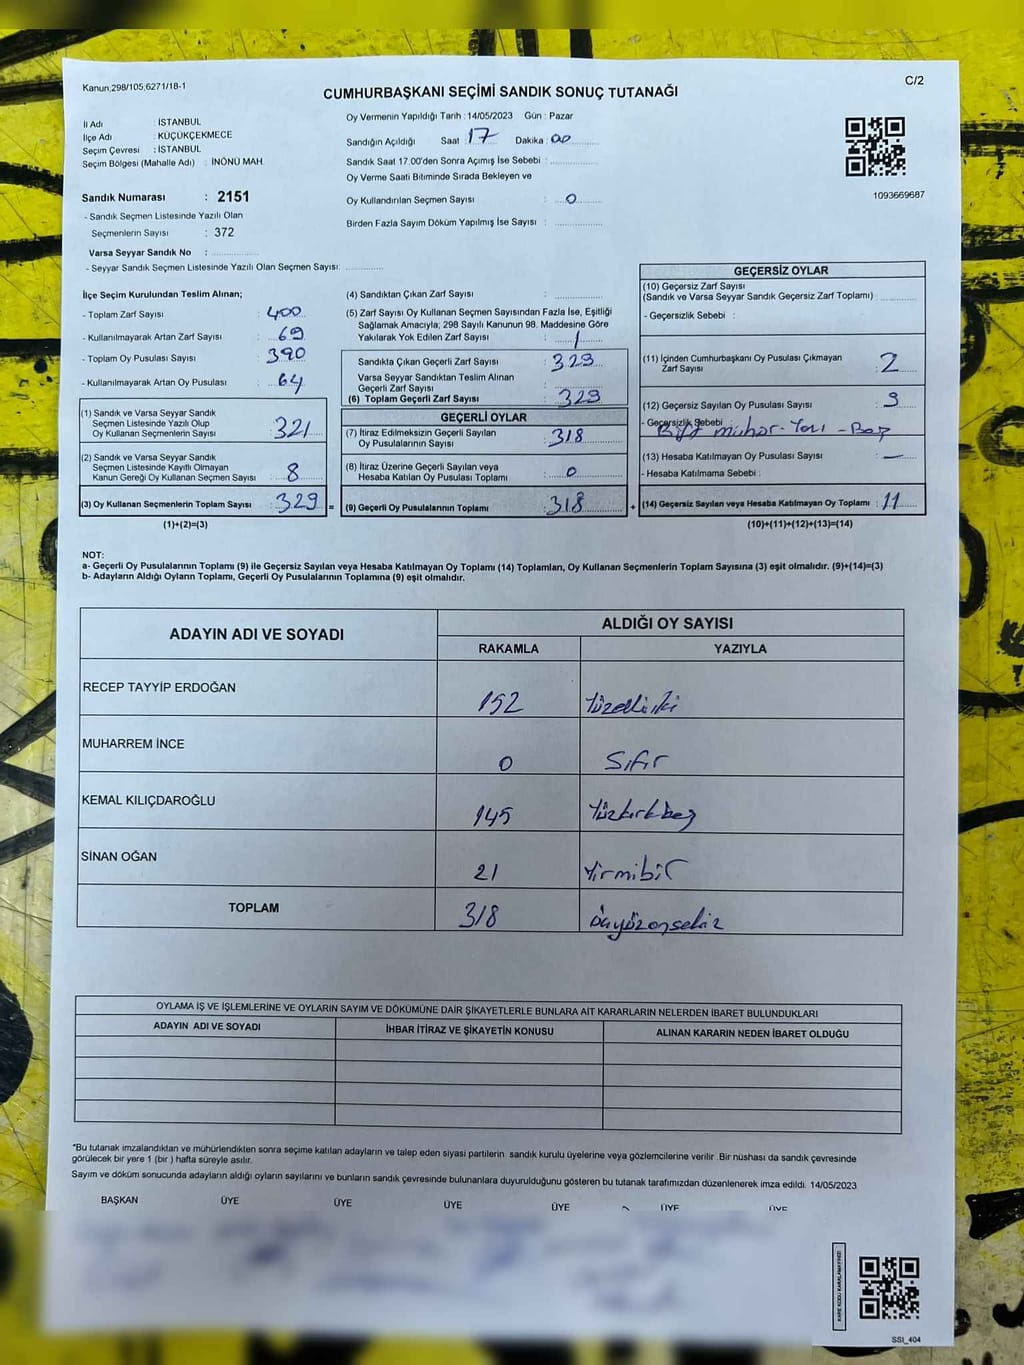 Kanun,298/105,6271/18-1
C/2
CUMHURBAŞKANI SEÇİMİ SANDIK SONUÇ TUTANAĞI
İl Adı : İSTANBUL
İlçe Adı : KÜÇÜKÇEKMECE
Seçim Çevresi : İSTANBUL
Seçim Bölgesi (Mahalle Adı) : İNÖNÜ MAH.
Sandık Numarası : 2151
- Sandık Seçmen Listesinde Yazılı Olan
Seçmenlerin Sayısı : 372
Varsa Seyyar Sandık No :
- Seyyar Sandık Seçmen Listesinde Yazılı Olan Seçmen Sayısı:
Oy Vermenin Yapıldığı Tarih : 14/05/2023 Gün : Pazar
Sandığın Açıldığı Saat 17 Dakika : 00
Sandık Saat 17.00'den Sonra Açımış İse Sebebi :
Oy Verme Saati Bitiminde Sırada Bekleyen ve
Oy Kullandırılan Seçmen Sayısı : 0
Birden Fazla Sayım Döküm Yapılmış İse Sayısı :
1093669687
İlçe Seçim Kurulundan Teslim Alınan;
- Toplam Zarf Sayısı : 400
- Kullanılmayarak Artan Zarf Sayısı : 69
- Toplam Oy Pusulası Sayısı : 390
- Kullanılmayarak Artan Oy Pusulası : 64
(1) Sandık ve Varsa Seyyar Sandık
Seçmen Listesinde Yazılı Olup
Oy Kullanan Seçmenlerin Sayısı : 321
(2) Sandık ve Varsa Seyyar Sandık
Seçmen Listesinde Kayıtlı Olmayan
Kanun Gereği Oy Kullanan Seçmen Sayısı : 8
(3) Oy Kullanan Seçmenlerin Toplam Sayısı : 329 =
(1)+(2)=(3)
(4) Sandıktan Çıkan Zarf Sayısı :
(5) Zarf Sayısı Oy Kullanan Seçmen Sayısından Fazla İse, Eşitliği
Sağlamak Amacıyla; 298 Sayılı Kanunun 98. Maddesine Göre
Yakılarak Yok Edilen Zarf Sayısı :
Sandıkta Çıkan Geçerli Zarf Sayısı : 329
Varsa Seyyar Sandıktan Teslim Alınan
Geçerli Zarf Sayısı :
(6) Toplam Geçerli Zarf Sayısı : 329
GEÇERLİ OYLAR
(7) İtiraz Edilmeksizin Geçerli Sayılan
Oy Pusulalarının Sayısı : 318
(8) İtiraz Üzerine Geçerli Sayılan veya
Hesaba Katılan Oy Pusulası Toplamı : 0
(9) Geçerli Oy Pusulalarının Toplamı : 318 +
GEÇERSİZ OYLAR
(10) Geçersiz Zarf Sayısı
(Sandık ve Varsa Seyyar Sandık Geçersiz Zarf Toplamı) :
- Geçersizlik Sebebi :
(11) İçinden Cumhurbaşkanı Oy Pusulası Çıkmayan
Zarf Sayısı : 2
(12) Geçersiz Sayılan Oy Pusulası Sayısı : 9
- Geçersizlik Sebebi
(13) Hesaba Katılmayan Oy Pusulası Sayısı : —
- Hesaba Katılmama Sebebi :
(14) Geçersiz Sayılan veya Hesaba Katılmayan Oy Toplamı : 11
(10)+(11)+(12)+(13)=(14)
NOT:
a- Geçerli Oy Pusulalarının Toplamı (9) ile Geçersiz Sayılan veya Hesaba Katılmayan Oy Toplamı (14) Toplamları, Oy Kullanan Seçmenlerin Toplam Sayısına (3) eşit olmalıdır. (9)+(14)=(3)
b- Adayların Aldığı Oyların Toplamı, Geçerli Oy Pusulalarının Toplamına (9) eşit olmalıdır.
ADAYIN ADI VE SOYADI
ALDIĞI OY SAYISI
RAKAMLA YAZIYLA
RECEP TAYYİP ERDOĞAN 152 Yüzelliiki
MUHARREM İNCE 0 Sıfır
KEMAL KILIÇDAROĞLU 145 Yüzkırkbeş
SİNAN OĞAN 21 Yirmibir
TOPLAM 318 üçyüzonsekiz
OYLAMA İŞ VE İŞLEMLERİNE VE OYLARIN SAYIM VE DÖKÜMÜNE DAİR ŞİKAYETLERLE BUNLARA AİT KARARLARIN NELERDEN İBARET BULUNDUKLARI
ADAYIN ADI VE SOYADI İHBAR İTİRAZ VE ŞİKAYETİN KONUSU ALINAN KARARIN NEDEN İBARET OLDUĞU
*Bu tutanak imzalandıktan ve mühürlendikten sonra seçime katılan adayların ve talep eden siyasi partilerin sandık kurulu üyelerine veya gözlemcilerine verilir .Bir nüshası da sandık çevresinde
görülecek bir yere 1 (bir ) hafta süreyle asılır.
Sayım ve döküm sonucunda adayların aldığı oyların sayılarını ve bunların sandık çevresinde bulunanlara duyurulduğunu gösteren bu tutanak tarafımızdan düzenlenerek imza edildi. 14/05/2023
BAŞKAN ÜYE ÜYE ÜYE ÜYE ÜYE ÜYE
SSI_404